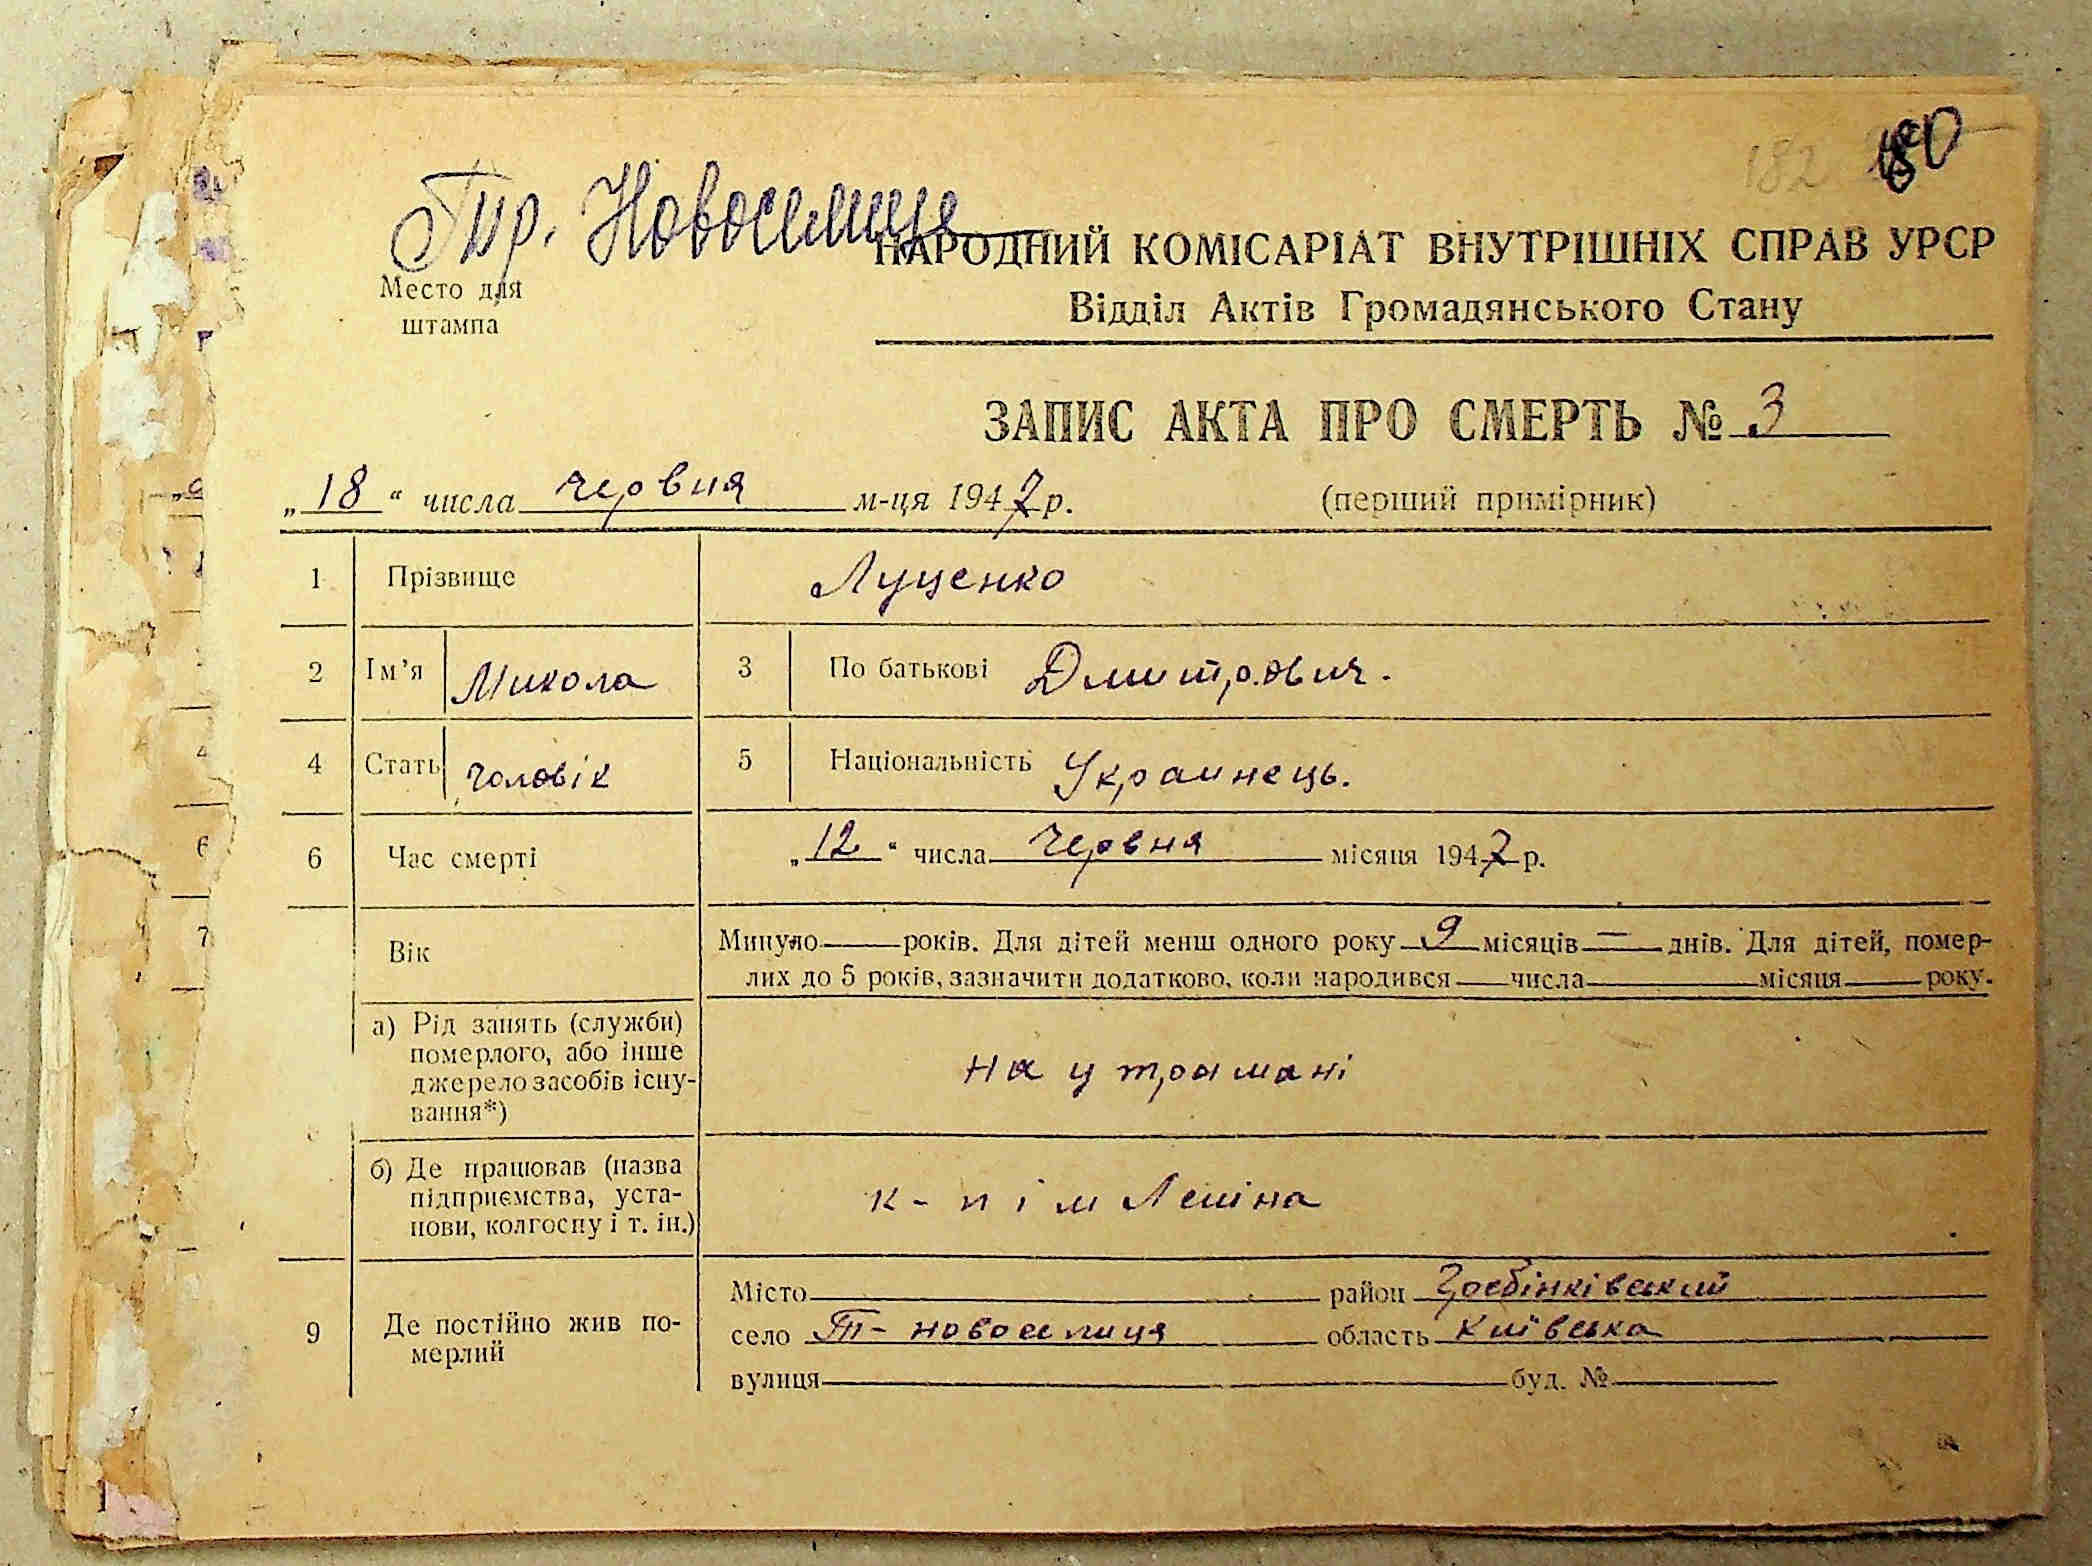 182 180
Тр. Новоселиця
Место для
штампа
НАРОДНИЙ КОМІСАРІАТ ВНУТРІШНІХ СПРАВ УРСР
Відділ Актів Громадянського Стану
ЗАПИС АКТА ПРО СМЕРТЬ № 3
„18“ числа червня м-ця 1947 р. (перший примірник)
1 Прізвище Луценко
2 Ім’я Микола 3 По батькові Дмитрович.
4 Стать чоловік 5 Національність Украинець.
6 Час смерті „12“ числа червня місяця 1947 р.
Вік Минуло — років. Для дітей менш одного року 9 місяців — днів. Для дітей, помер-
лих до 5 років, зазначити додатково, коли народився — числа — місяця — року.
а) Рід занять (служби)
померлого, або інше
джерело засобів існу-
вання*)
на утримані
б) Де працював (назва
підприємства, уста-
нови, колгоспу і т. ін.)
к-п ім Леніна
9 Де постійно жив по-
мерлий
Місто — район Гребінківський
село Т-новоселиця область Київська
вулиця — буд. №